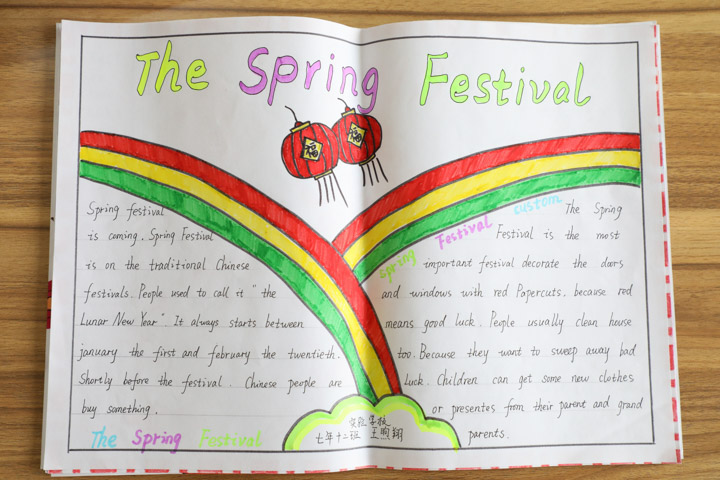 The Spring Festival
福 福
Spring festival
is coming. Spring Festival
is on the traditional Chinese
festivals. People used to call it "the
Lunar New Year". It always starts between
january the first and february the twentieth.
Shortly before the festival. Chinese people are
buy something.
The Spring Festival
spring Festival custom
The Spring
Festival is the most
important festival decorate the doors
and windows with red Papercuts. because red
means good luck. People usually clean house
too. Because they want to sweep away bad
luck. Children can get some new clothes
or presentes from their parent and grand
parents.
实验学校
七年十二班 王煦翔